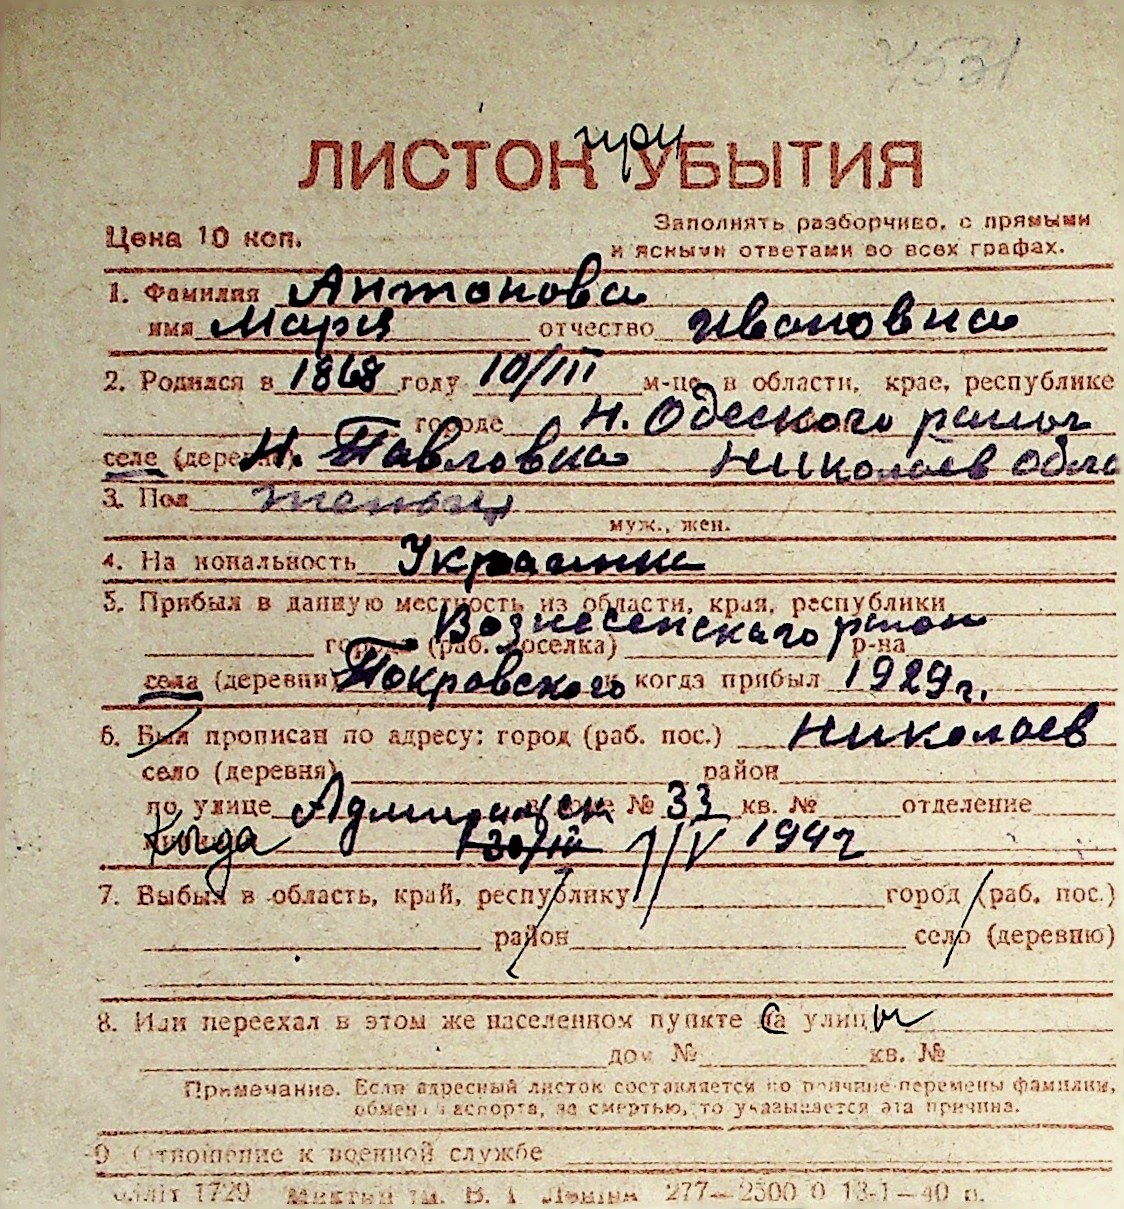 4531
при
ЛИСТОК УБЫТИЯ
Цена 10 коп.
Заполнять разборчиво, с прямыми
и ясными ответами во всех графах.
1. Фамилия Антонова
имя Мария отчество Ивановна
2. Родился в 1868 году 10/III м-це, в области, крае, республике
городе Н. Одеского район
селе (деревне) Н. Павловка Николаев обла
3. Пол
муж., жен.
4. Национальность Украинка
5. Прибыл в данную местность из области, края, республики
Вознесенскаго район
города (раб. поселка) р-на
села (деревни) Покровского и когда прибыл 1929 г.
6. Был прописан по адресу: город (раб. пос.) Николаев
село (деревня) район
по улице в доме № 33 кв. № отделение
Когда 30/III 1/IV 1942
7. Выбыл в область, край, республику город (раб. пос.)
район село (деревню)
8. Или переехал в этом же населенном пункте на улицы
дом № кв. №
Примечание. Если адресный листок составляется по причине перемены фамилии,
обмена паспорта, за смертью, то указывается эта причина.
9 Отношение к военной службе
1729 им. В. І. Леніна 277—2500 0 13-1—40 п.